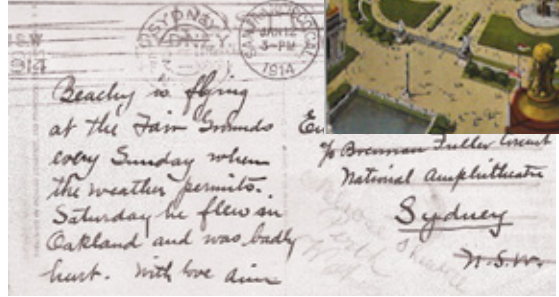 SYDNEY
JAN 12
3-PM
1914
1914
Beachy is flying
at the Fair Grounds
every Sunday when
the weather permits.
Saturday he flew in
Oakland and was badly
hurt. With love
c/o Brennan Fuller Circuit
National Amphitheatre
Sydney
N.S.W.